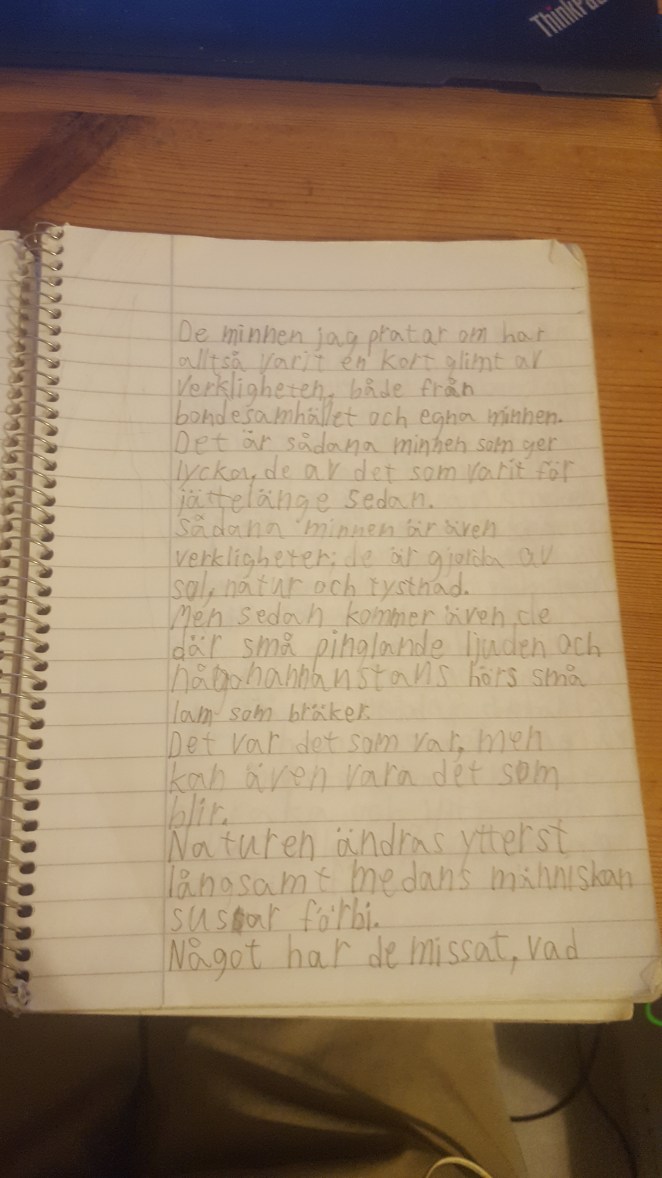 ThinkPad
De minnen jag pratar om har
alltså varit en kort glimt av
verkligheten, både från
bondesamhället och egna minnen.
Det är sådana minnen som ger
lycka, de av det som varit för
jättelänge sedan.
Sådana minnen är även
verkligheter; de är gjorda av
sol, natur och tystnad.
Men sedan kommer även de
där små pinglande ljuden och
någonannanstans hörs små
lam som bräker.
Det var det som var, men
kan även vara det som
blir.
Naturen ändras ytterst
långsamt medans människan
susar förbi.
Något har de missat, vad